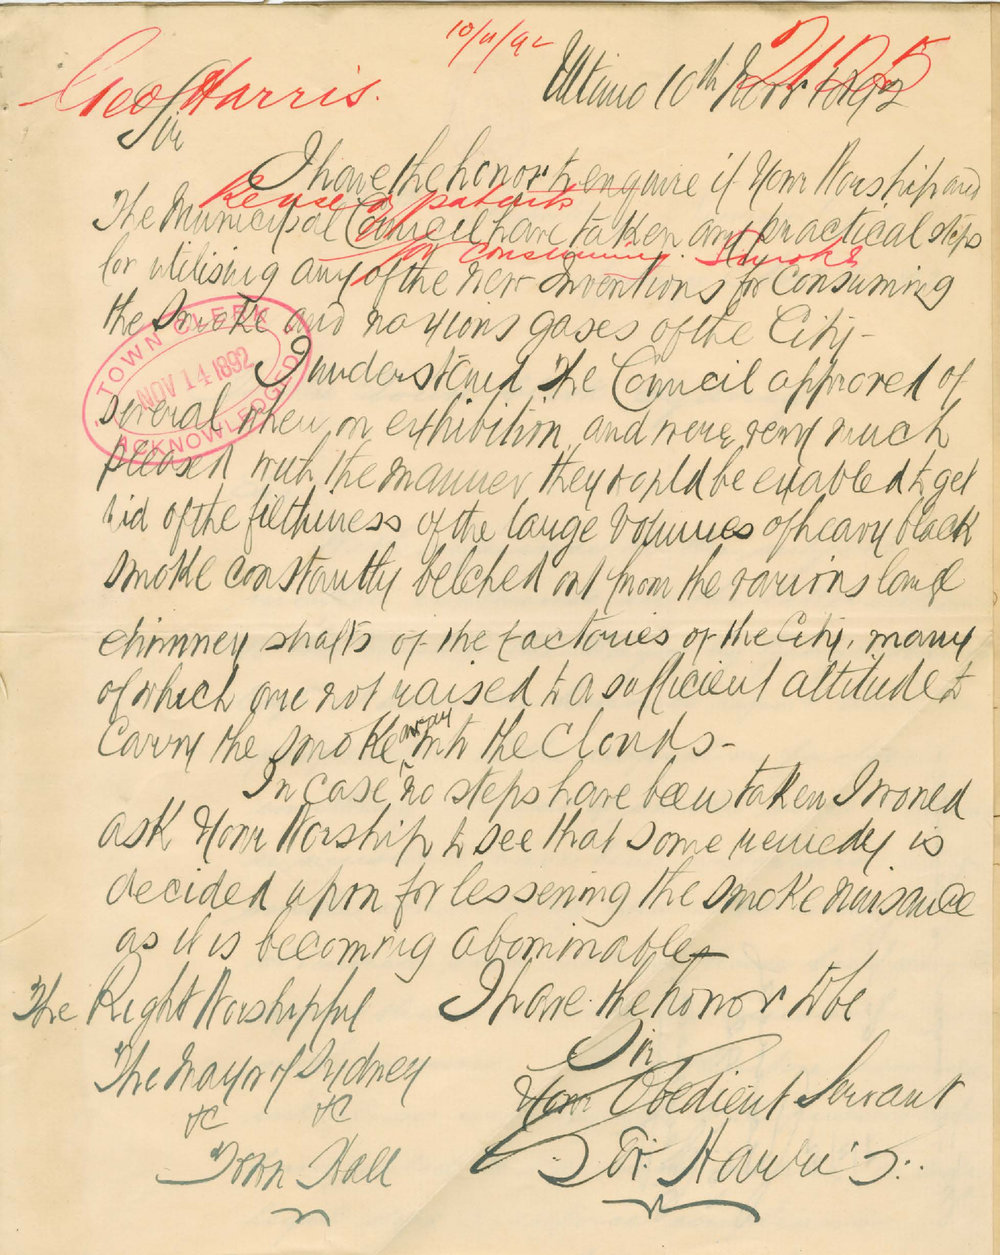 10/11/92
2185
Geo Harris.
Ultimo 10th Novr 1892
Sir
I have the honor to enquire if Your Worship and
Re use of patents
The Municipal Council have taken any practical steps
for consuming Smoke
for utilising any of the new inventions for Consuming
the Smoke and noxious gases of the City –
TOWN CLERK
NOV 14 1892
ACKNOWLEDGED
I understand the Council approved of
several when on exhibition and were very much
pleased with the manner they would be enabled to get
rid of the filthiness of the large volumes of heavy black
smoke constantly belched out from the various large
chimney shafts of the factories of the City, many
of which are not raised to a sufficient altitude to
Carry the smoke away into the Clouds –
In case no steps have been taken I would
ask Your Worship to see that some remedy is
decided upon for lessening the smoke nuisance
as it is becoming abominable –
The Right Worshipful
I have the honor to be
The Mayor of Sydney
Sir
&c &c
Your Obedient Servant
Town Hall
Geo. Harris